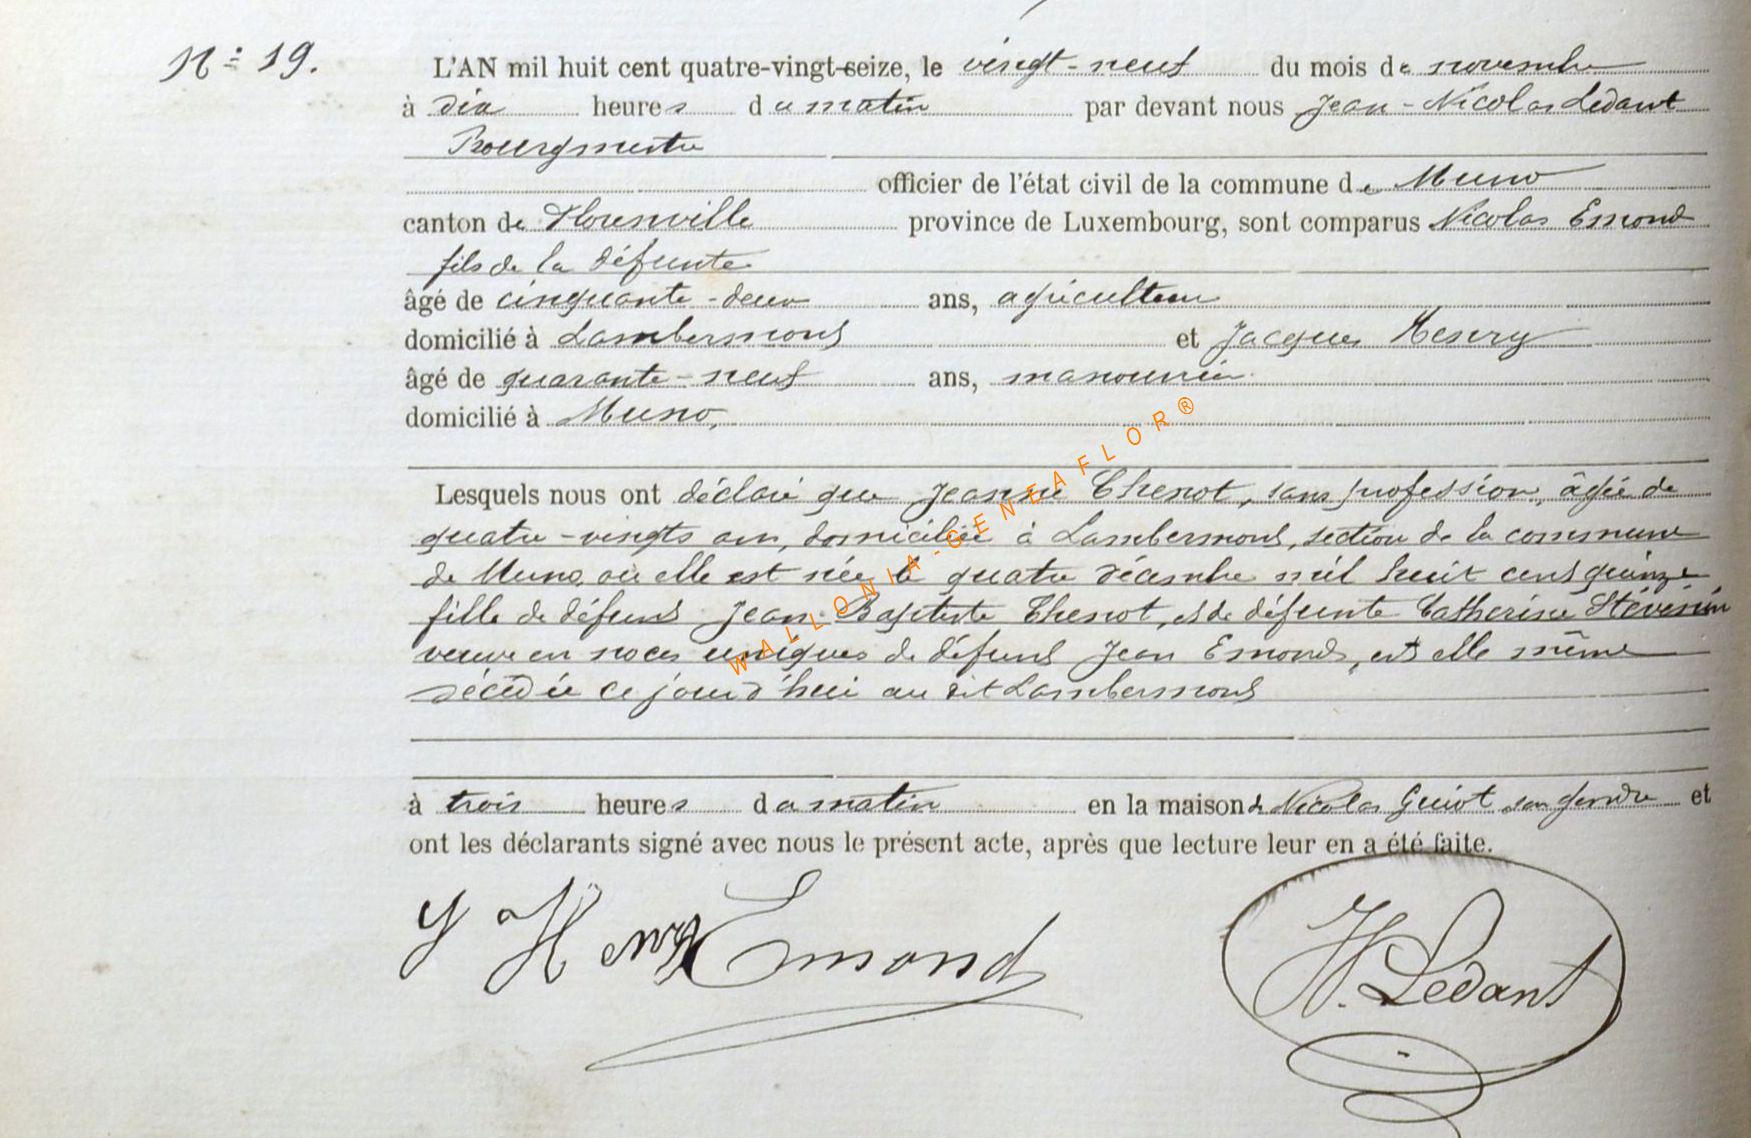 N° 19.
L'AN mil huit cent quatre-vingt-seize, le vingt-neuf du mois de novembre
à dix heures du matin par devant nous Jean-Nicolas Ledant
Bourgmestre
officier de l'état civil de la commune de Muno
canton de Florenville province de Luxembourg, sont comparus Nicolas Emond
fils de la défunte
âgé de cinquante-deux ans, agriculteur
domicilié à Lambermont et Jacques Henry
âgé de quarante-neuf ans, manouvrier
domicilié à Muno,
Lesquels nous ont déclaré que Jeanne Thenot, sans profession, âgée de
quatre-vingts ans, domiciliée à Lambermont, section de la commune
de Muno, où elle est née le quatre décembre mil huit cent quinze
fille de défunt Jean-Baptiste Thenot, et de défunte Catherine Stévenin
veuve en noces uniques de défunt Jean Emond, est elle même
décédée ce jourd'hui au dit Lambermont
à trois heures du matin en la maison de Nicolas Guiot son gendre et
ont les déclarants signé avec nous le présent acte, après que lecture leur en a été faite.
J Henry Emond N. Ledant
WALLONIA-GENEAFLOR®